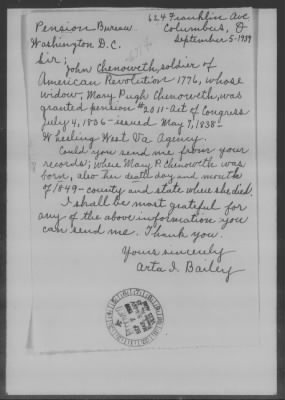 624 Franklin Ave
Pension Bureau Columbus, O
Washington D.C. September 5-1939
Sir;
John Chenoweth, soldier of
American Revolution 1776, whose
widow, Mary Pugh Chenoweth, was
granted pension #2011-Act of Congress
July 4, 1836-issued May 7, 1838-
Wheeling West Va Agency.
Could you send me from your
records; where Mary P. Chenoweth was
born, also her death day and month
of 1849-county and state where she died.
I shall be most grateful for
any of the above information you
can send me. Thank you.
Yours sincerely
Arta I. Bailey